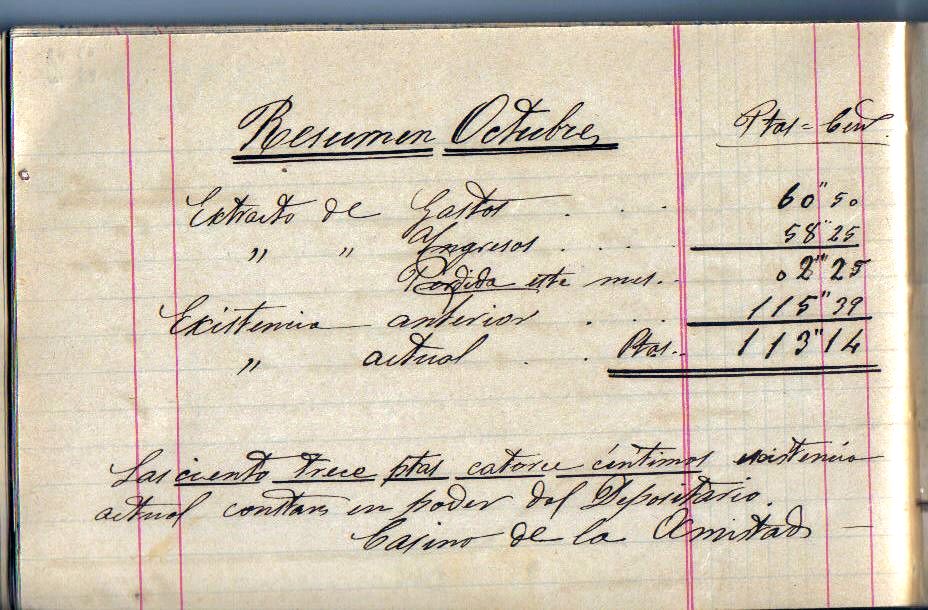 Resumen Octubre Ptas = Cent.
Extracto de Gastos . . . 60" 50
" " Yngresos . . . 58" 25
Pérdida este mes. . 02" 25
Existencia anterior . . . 115" 39
" actual . . Ptas. . 113" 14
Las ciento trece ptas catorce céntimos existencia
actual constan en poder del Depositario.
Casino de la Amistad